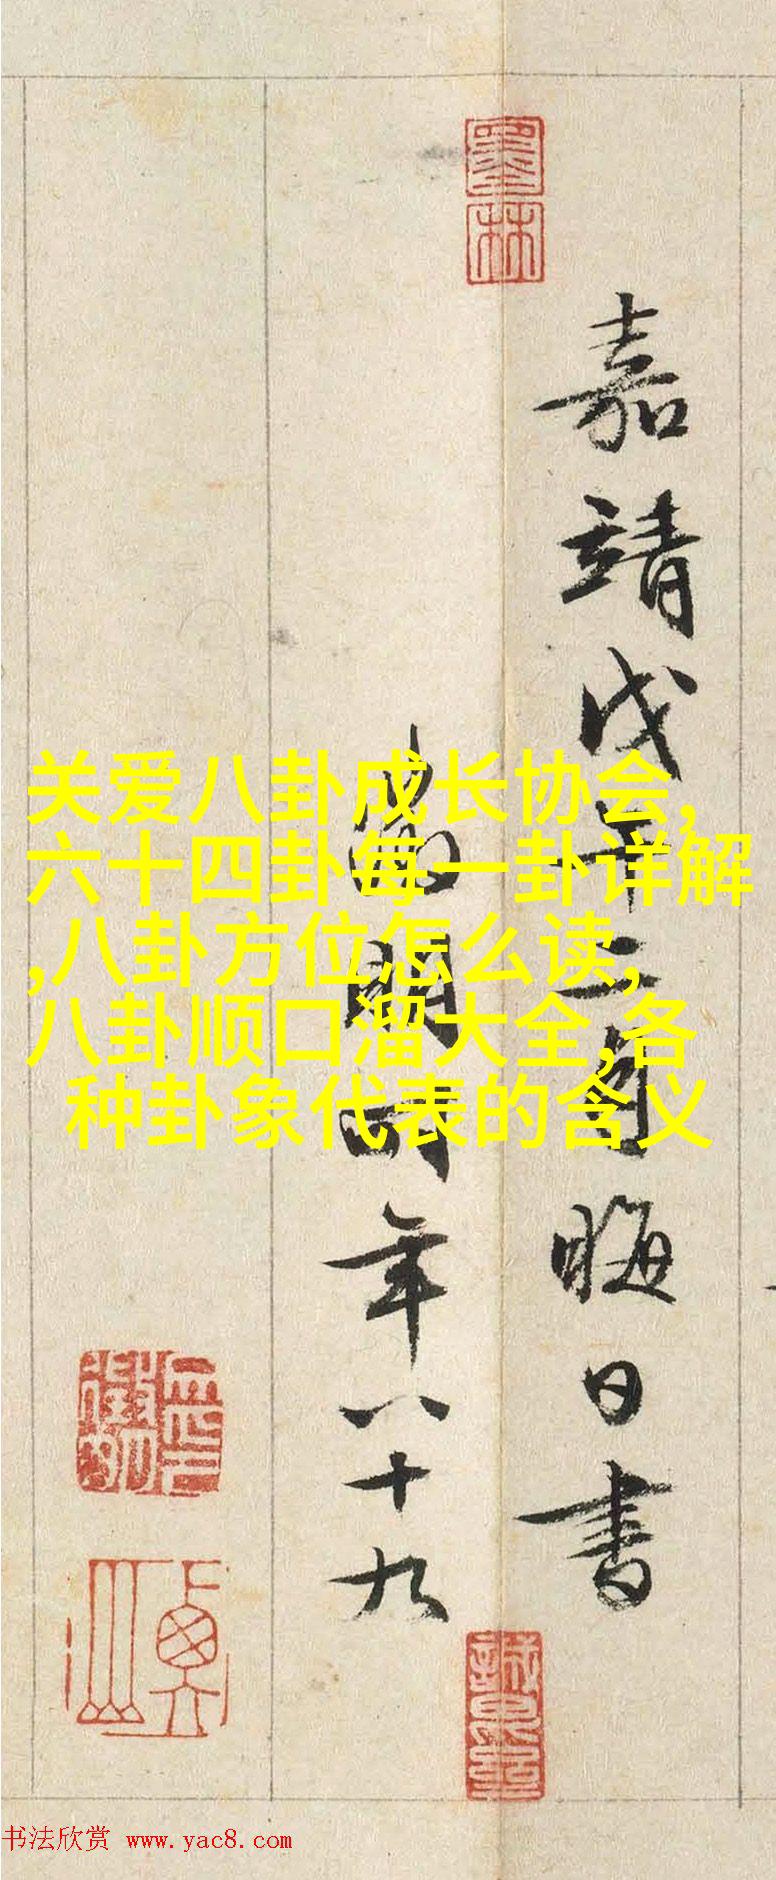 墨林
嘉靖戊午二月晦日書
徵明時年八十九
衡山
关爱八卦成长协会,
六十四卦每一卦详解
,八卦方位怎么读,
八卦顺口溜大全,各
种卦象代表的含义
书法欣赏 www.yac8.com